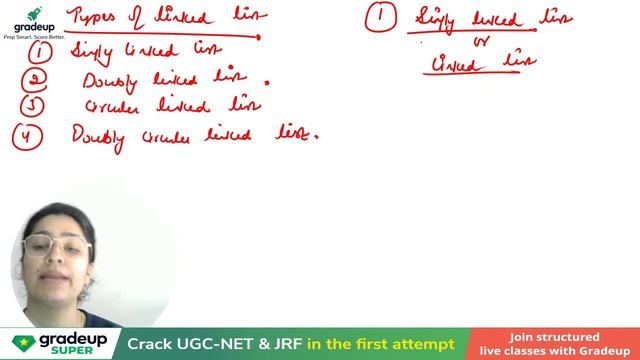 gradeup
Prep Smart. Score Better.
Types of linked list
1 Singly linked list
2 Doubly linked list.
3 circular linked list
4 Doubly circular linked list.
1 Singly linked list
or
linked list
gradeup
SUPER
Crack UGC-NET & JRF in the first attempt
Join structured
live classes with Gradeup